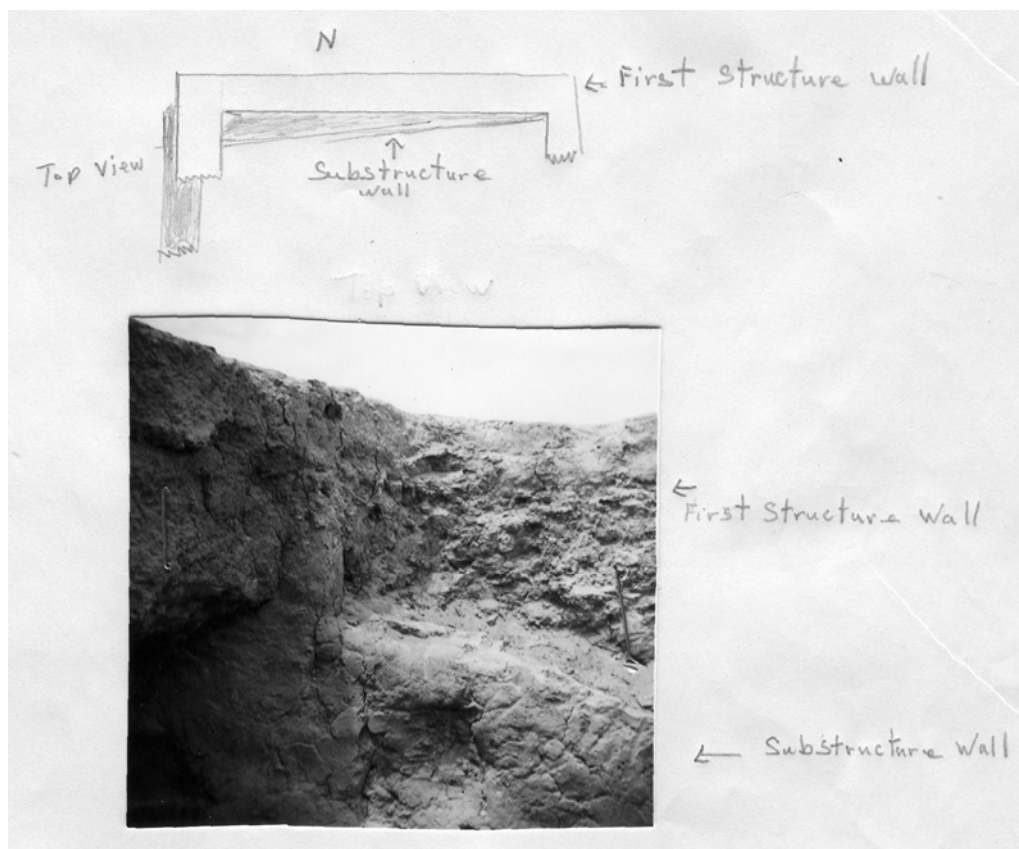 N
← First Structure Wall
Top View
Substructure
wall
Top View
← First Structure Wall
← Substructure Wall